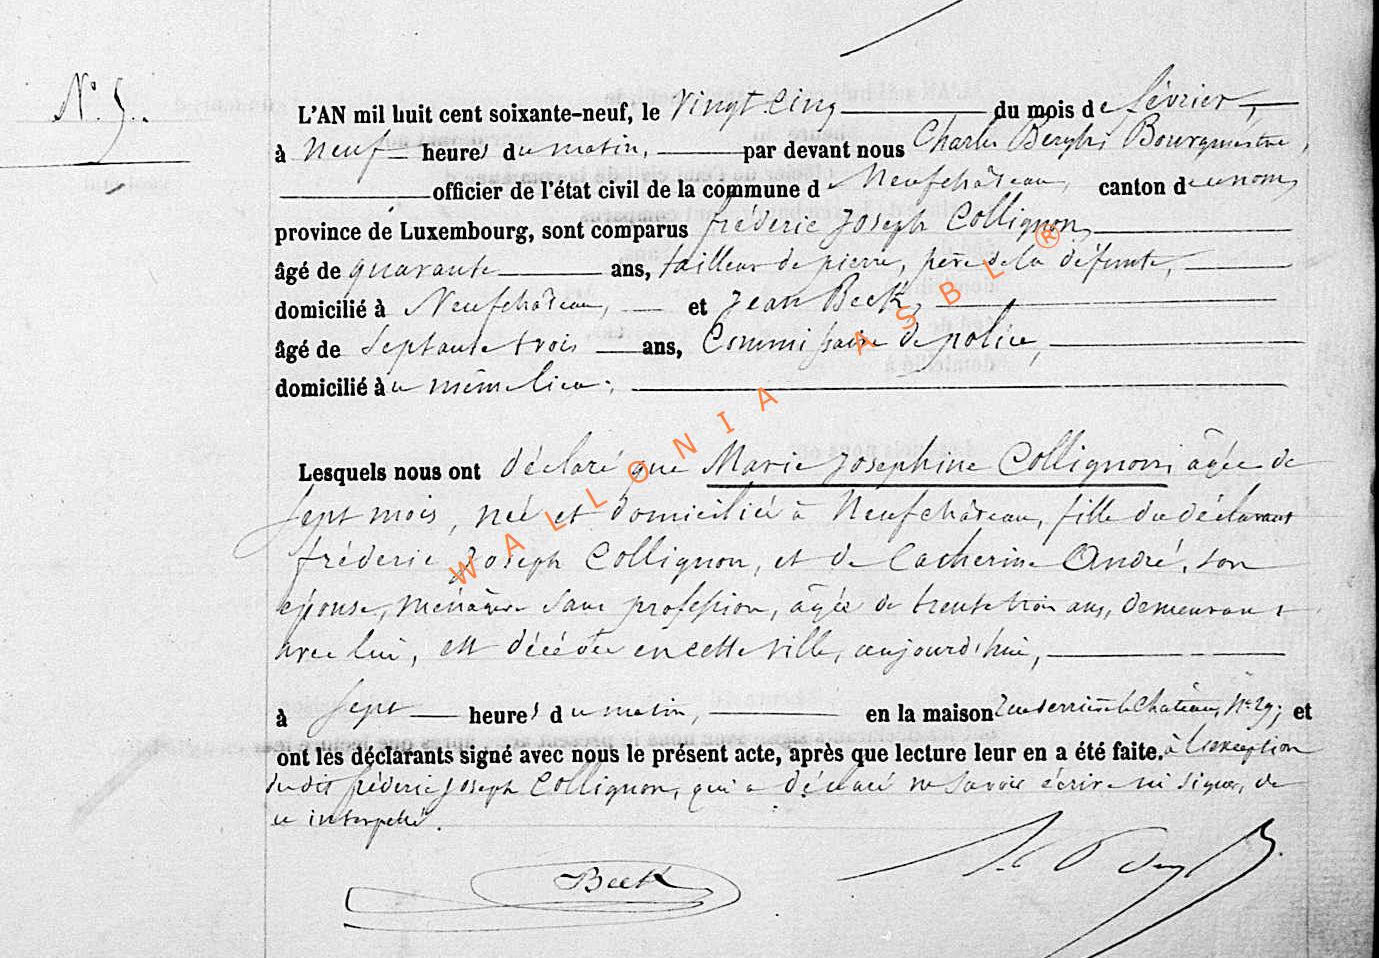 N° 5.
L'AN mil huit cent soixante-neuf, le Vingt Cinq du mois de février,
à Neuf heures du matin, par devant nous Charles Bourgmestre,
officier de l'état civil de la commune de Neufchâteau, canton de ce nom,
province de Luxembourg, sont comparus fréderic Joseph Collignon,
âgé de quarante ans, tailleur de pierre, père de la défunte,
domicilié à Neufchâteau, et Jean Beck,
âgé de Septante trois ans, Commissaire de police,
domicilié à ce même lieu;
Lesquels nous ont déclaré que Marie Josephine Collignon, âgée de
sept mois, née et domiciliée à Neufchâteau, fille du déclarant
fréderic Joseph Collignon, et de Catherine André, son
épouse, ménagère sans profession, âgée de trente trois ans, demeurant
avec lui, est décédée en cette ville, aujourd'hui,
à sept heures du matin, en la maison rue derrière le Château, N° 29; et
ont les déclarants signé avec nous le présent acte, après que lecture leur en a été faite. à l'exception
du dit fréderic Joseph Collignon, qui a déclaré ne savoir écrire ni signer, de
ce interpellé.
Beck
WALLONIA ASBL ®